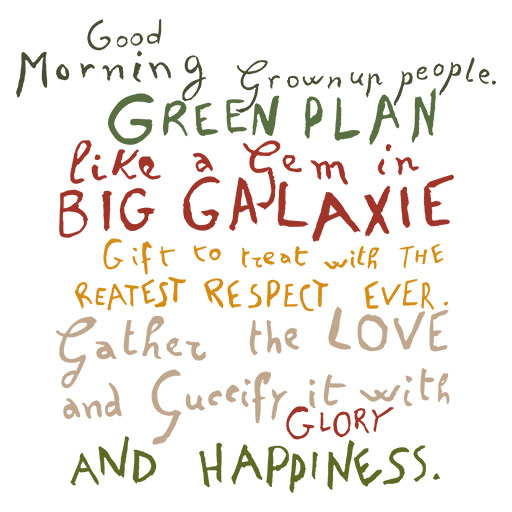 Good
Morning Grownup people.
GREEN PLAN
like a Gem in
BIG GALAXIE
Gift to treat with THE
REATEST RESPECT EVER.
Gather the LOVE
and Guccify it with
GLORY
AND HAPPINESS.